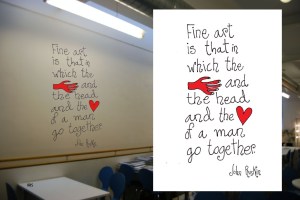 Fine art
is that in
which the
and
the head
and the
of a man
go together.
John Ruskin
Fine art
is that in
which the
and
the head
and the
of a man
go together.
John Ruskin